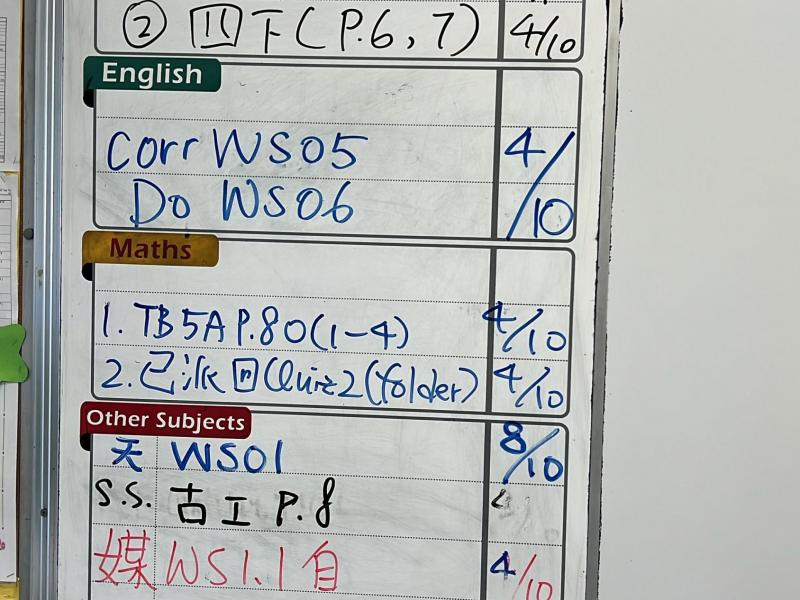 ② 四下(P.6,7) 4/10
English
Corr WS05 4/10
Do WS06
Maths
1. TB5A P.80(1-4) 4/10
2. 已派回Quiz2(folder) 4/10
Other Subjects
天 WS01 8/10
S.S. 古工 P.8
媒 WS1.1 自 4/10